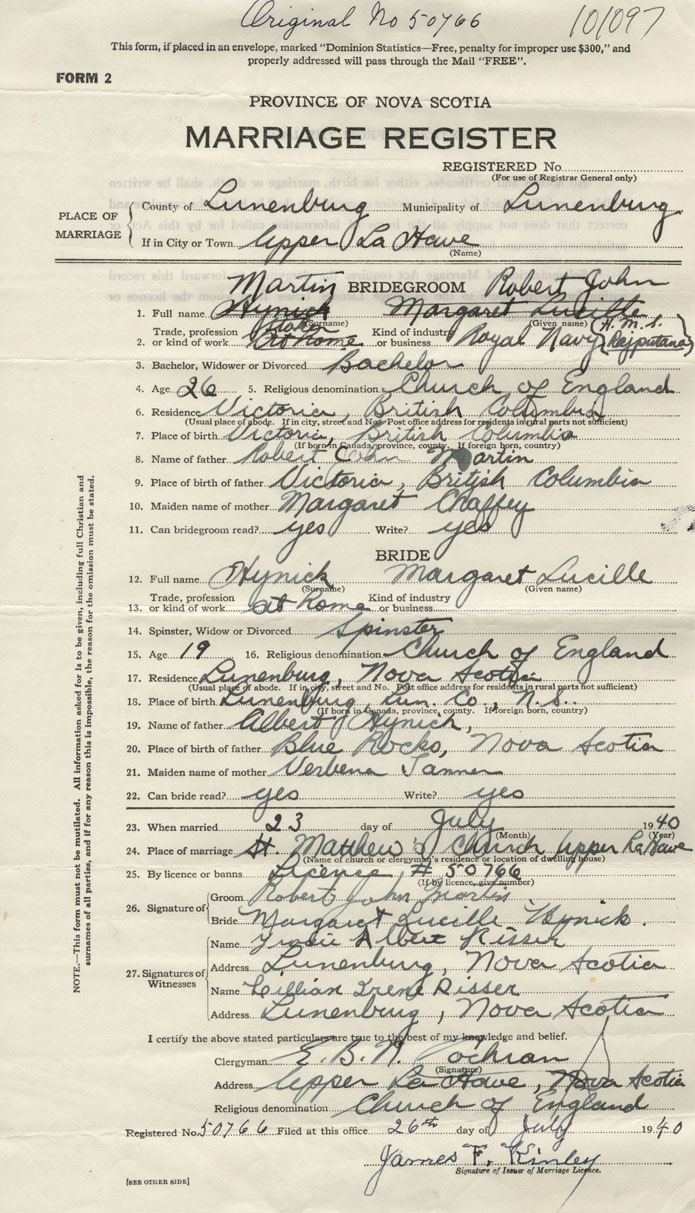 Original No 50766 101097
This form, if placed in an envelope, marked "Dominion Statistics—Free, penalty for improper use $300," and
properly addressed will pass through the Mail "FREE".
FORM 2
PROVINCE OF NOVA SCOTIA
MARRIAGE REGISTER
REGISTERED No.
(For use of Registrar General only)
PLACE OF MARRIAGE
County of Lunenburg Municipality of Lunenburg
If in City or Town Upper La Have
(Name)
Martin BRIDEGROOM Robert John
1. Full name Hynick Margaret Lucille
(Surname) (Given name)
Trade, profession Kind of industry
2. or kind of work At home or business Royal Navy (H.M.S. Rajputana)
3. Bachelor, Widower or Divorced Bachelor
4. Age 26 5. Religious denomination Church of England
6. Residence Victoria, British Columbia
(Usual place of abode. If in city, street and No. Post office address for residents in rural parts not sufficient)
7. Place of birth Victoria, British Columbia
(If born in Canada, province, county. If foreign born, country)
8. Name of father Robert John Martin
9. Place of birth of father Victoria, British Columbia
10. Maiden name of mother Margaret Chaffey
11. Can bridegroom read? yes Write? yes
BRIDE
12. Full name Hynick Margaret Lucille
(Surname) (Given name)
Trade, profession Kind of industry
13. or kind of work at home or business
14. Spinster, Widow or Divorced Spinster
15. Age 19 16. Religious denomination Church of England
17. Residence Lunenburg, Nova Scotia
(Usual place of abode. If in city, street and No. Post office address for residents in rural parts not sufficient)
18. Place of birth Lunenburg, Lun. Co., N.S.
(If born in Canada, province, county. If foreign born, country)
19. Name of father Albert Hynick,
20. Place of birth of father Blue Rocks, Nova Scotia
21. Maiden name of mother Verbena Tanner
22. Can bride read? yes Write? yes
23. When married 23 day of July 1940
(Month) (Year)
24. Place of marriage St Matthew's Church Upper La Have
(Name of church or clergyman's residence or location of dwelling house)
25. By licence or banns Licence # 50766
(If by licence, give number)
26. Signature of
Groom Robert John Martin
Bride Margaret Lucille Hynick.
27. Signatures of Witnesses
Name Albert Risser
Address Lunenburg, Nova Scotia
Name Lillian Irene Risser
Address Lunenburg, Nova Scotia
I certify the above stated particulars are true to the best of my knowledge and belief.
Clergyman E. B. N. Cochran
(Signature)
Address Upper La Have, Nova Scotia
Religious denomination Church of England
Registered No. 50766 Filed at this office 26th day of July 1940
James F. Kinley
Signature of Issuer of Marriage Licence.
[SEE OTHER SIDE]
NOTE.—This form must not be mutilated. All information asked for is to be given, including full Christian and
surnames of all parties, and if for any reason this is impossible, the reason for the omission must be stated.